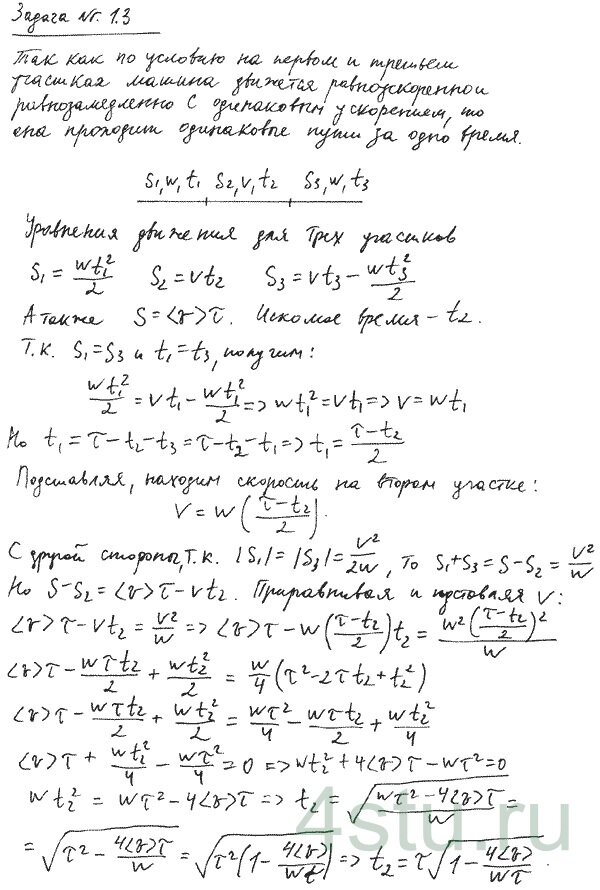 Задача №. 1.3
Так как по условию на первом и третьем
участках машина движется равноускоренно и
равнозамедленно с одинаковым ускорением, то
она проходит одинаковые пути за одно время.
S₁,w,t₁ S₂,v,t₂ S₃,w,t₃
Уравнения движения для трех участков
S₁ = wt₁²/2 S₂ = vt₂ S₃ = vt₃ − wt₃²/2
А также S = <v>τ. Искомое время − t₂.
Т.к. S₁=S₃ и t₁=t₃, получим:
wt₁²/2 = vt₁ − wt₁²/2 => wt₁² = vt₁ => v = wt₁
Но t₁ = τ−t₂−t₃ = τ−t₂−t₁ => t₁ = (τ−t₂)/2
Подставляя, находим скорость на втором участке:
v = w((τ−t₂)/2).
С другой стороны, т.к. |S₁| = |S₃| = v²/2w, то S₁+S₃ = S−S₂ = v²/w
Но S−S₂ = <v>τ − vt₂. Приравнивая и подставляя v:
<v>τ − vt₂ = v²/w => <v>τ − w((τ−t₂)/2)t₂ = w²((τ−t₂)/2)²/w
<v>τ − wτt₂/2 + wt₂²/2 = w/4(τ²−2τt₂+t₂²)
<v>τ − wτt₂/2 + wt₂²/2 = wτ²/4 − wτt₂/2 + wt₂²/4
<v>τ + wt₂²/4 − wτ²/4 = 0 => wt₂² + 4<v>τ − wτ² = 0
wt₂² = wτ² − 4<v>τ => t₂ = √((wτ² − 4<v>τ)/w) =
= √(τ² − 4<v>τ/w) = √(τ²(1 − 4<v>/wτ)) => t₂ = τ√(1 − 4<v>/wτ).
4stu.ru